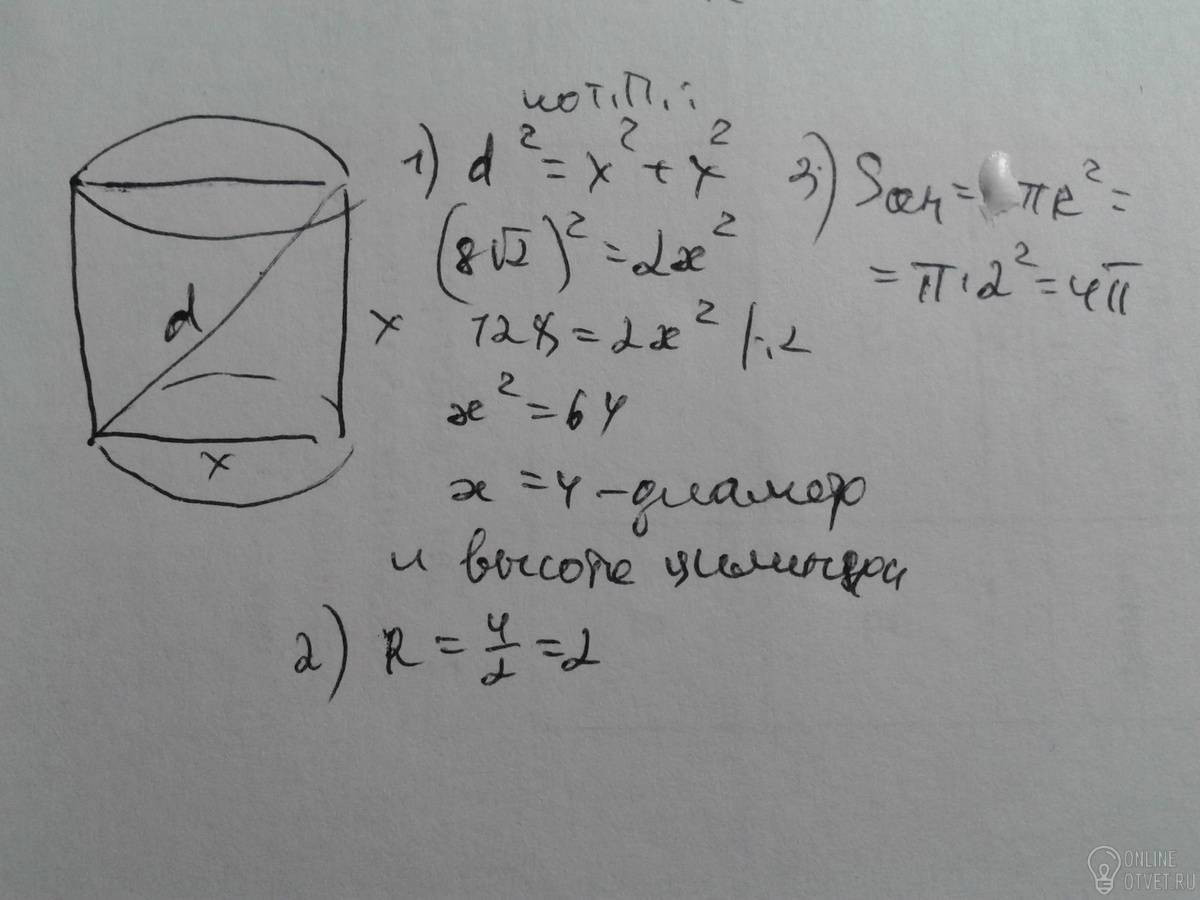 по т.П.:
1) d² = x² + x²
(8√2)² = 2x²
128 = 2x² |:2
x² = 64
x = 4 - диаметр
и высота цилиндра
2) R = 4/2 = 2
3) Sосн = πR² =
= π·2² = 4π
d
x
x
ONLINE
OTVET.RU